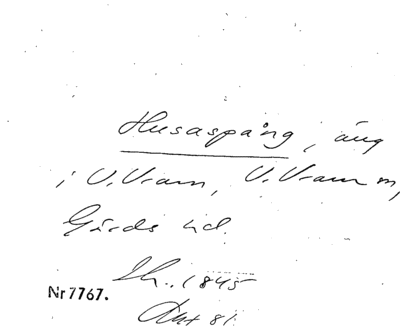 Husaspång, äng
i V. Vram, V. Vram sn,
Gärds hd.
Sk. 1845
Nr 7767.
Akt 81